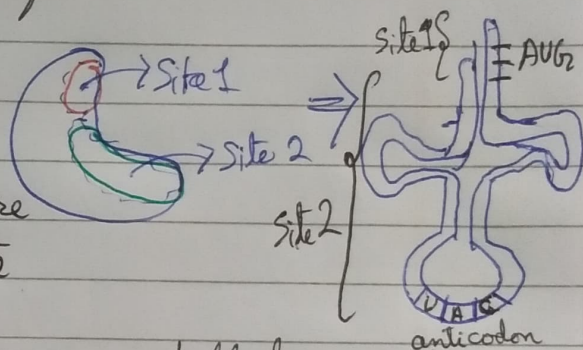 Site 1
Site 2
site 1
AUG2
Site 2
U A C
anticodon